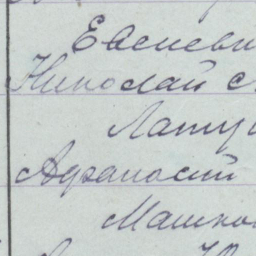 Евсееви
Николай с
Лату
Афанасий
Машко